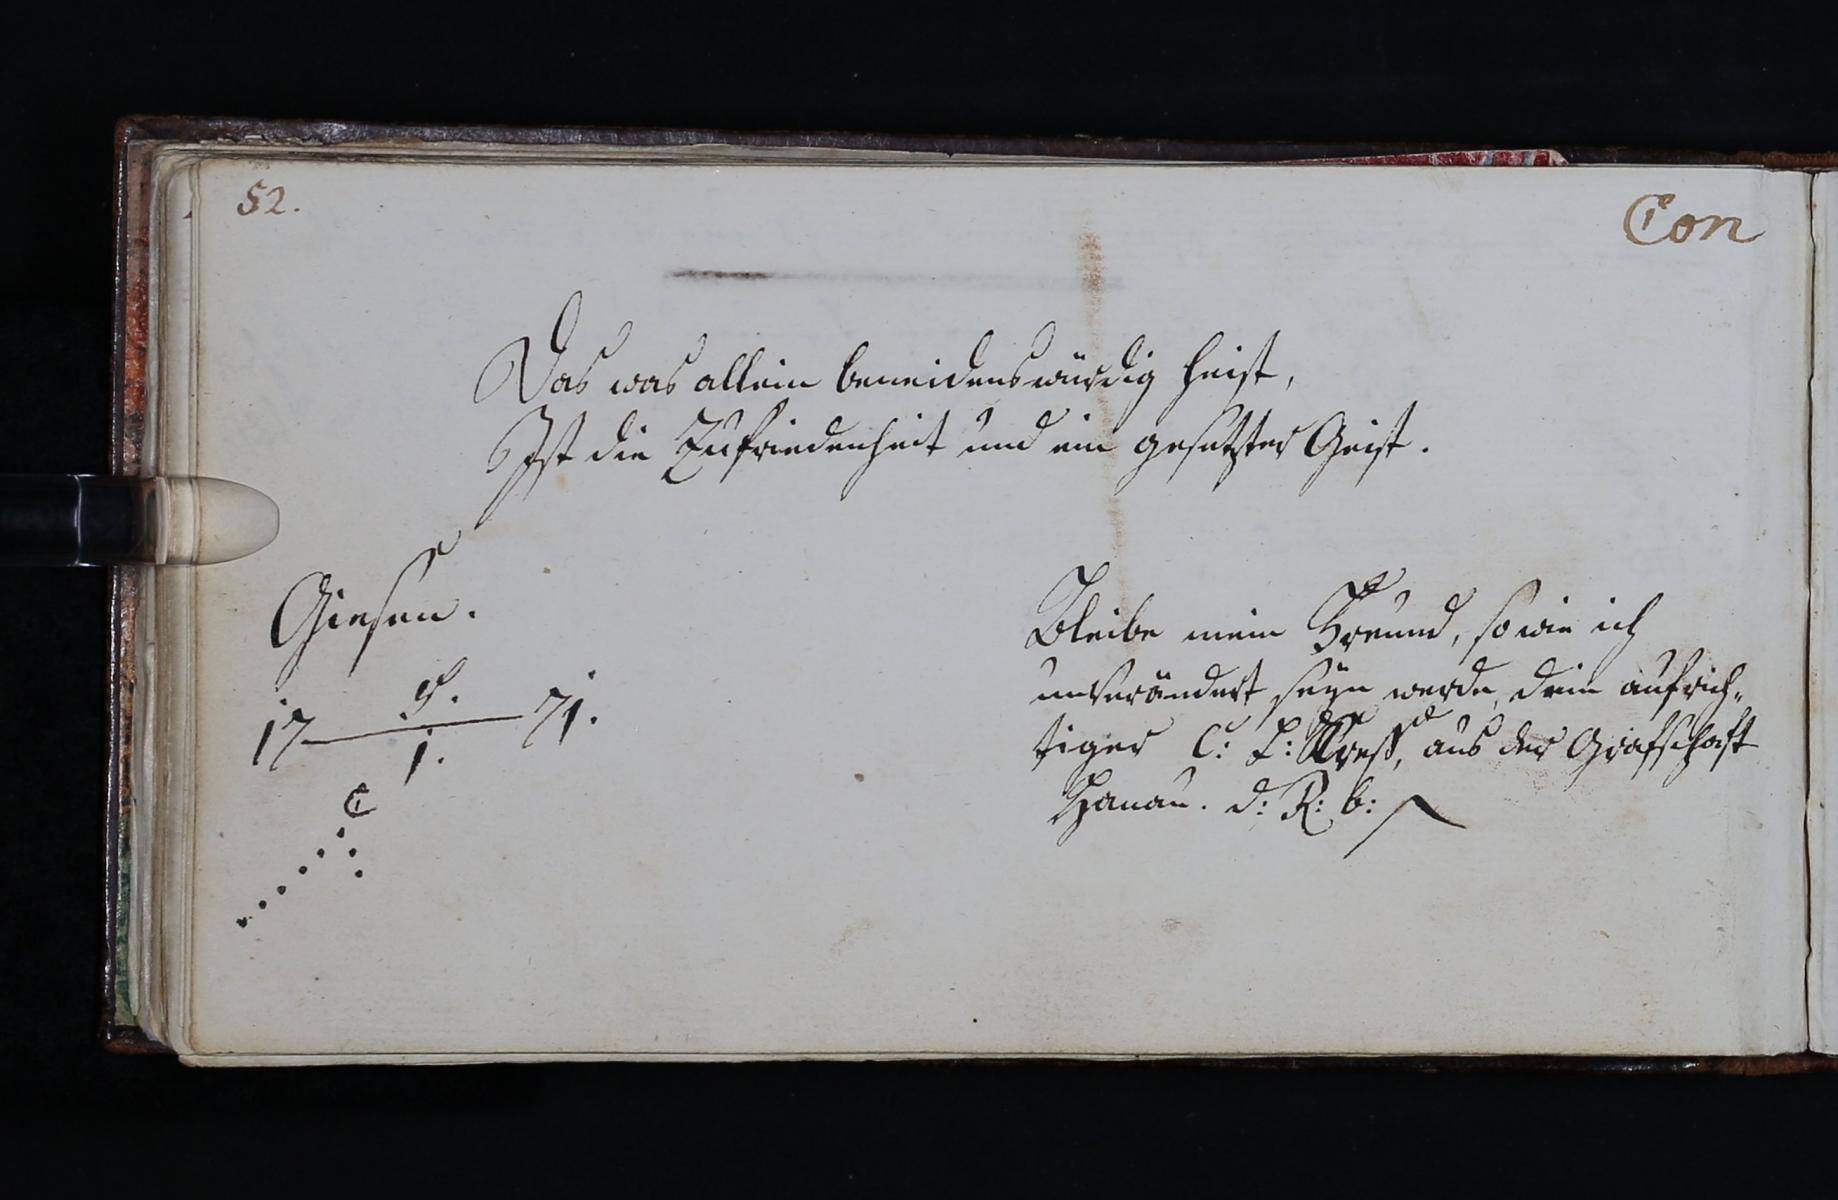 52.
Con
Das was allein beneidenswürdig heist,
Ist die Zufriedenheit und ein gesetzter Geist.
Giesen.
17 9. 71.
1.
Bleibe mein Freund, so wie ich
unverändert seyn werde, dein aufrich-
tiger C: L: Kress, aus der Grafschaft
Hanau. d: R: b: